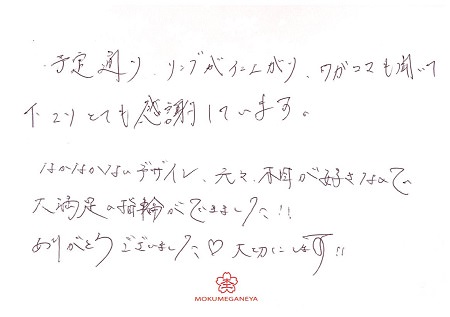 予定通り、リングが仕上がり、ワガママも聞いて
下さりとても感謝しています。
なかなかないデザイン、元々、木目が好きなので
大満足の指輪ができました!!
ありがとうございました♡大切にします!!
MOKUMEGANEYA